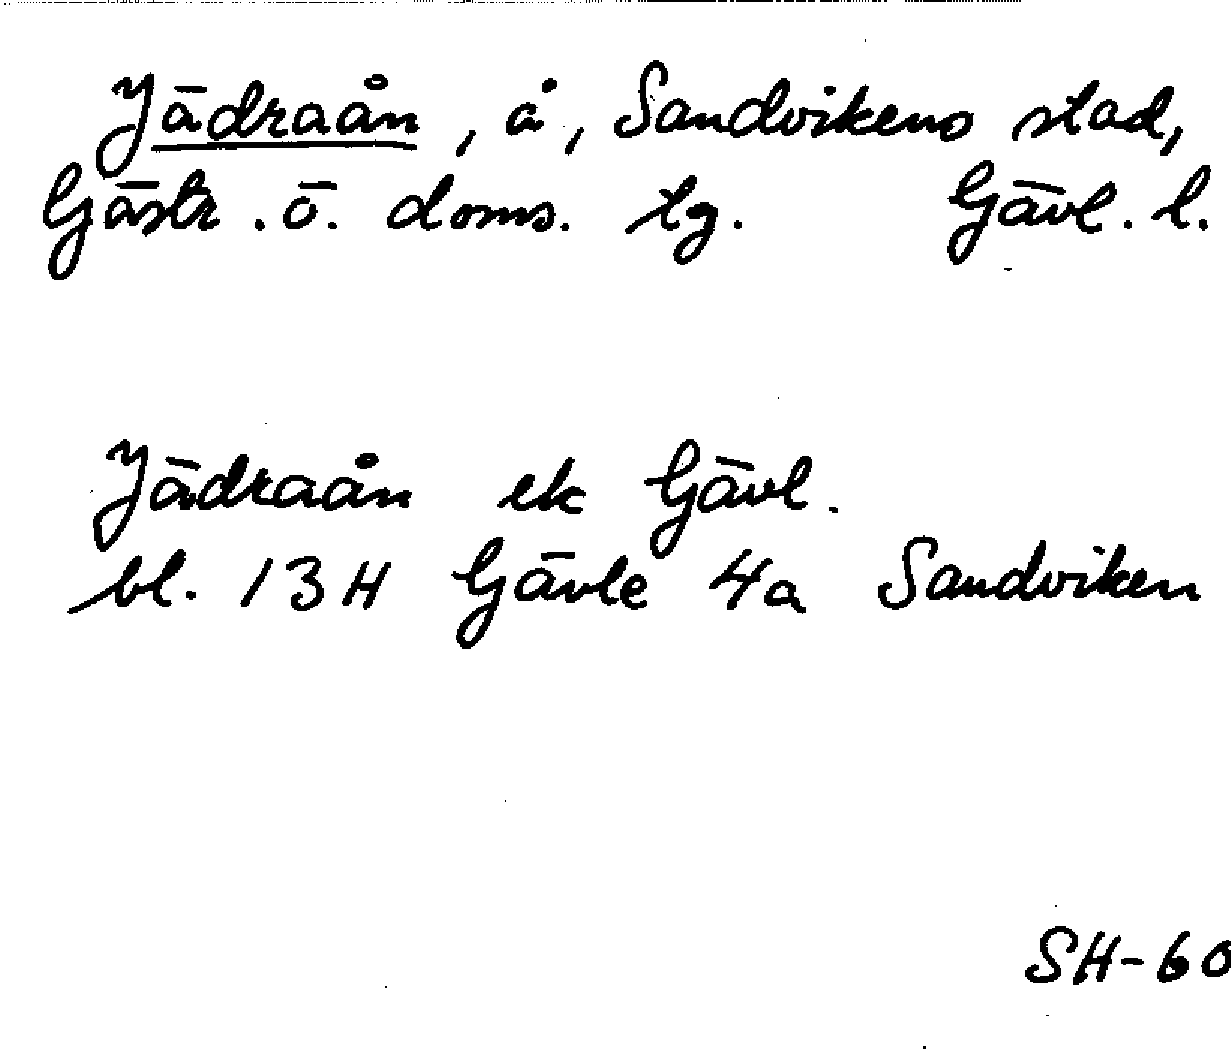 Jädraån, å, Sandvikens stad,
Gästr. ö. doms. tg. Gävl. l.
Jädraån ek Gävl.
bl. 13H Gävle 4a Sandviken
SH-60